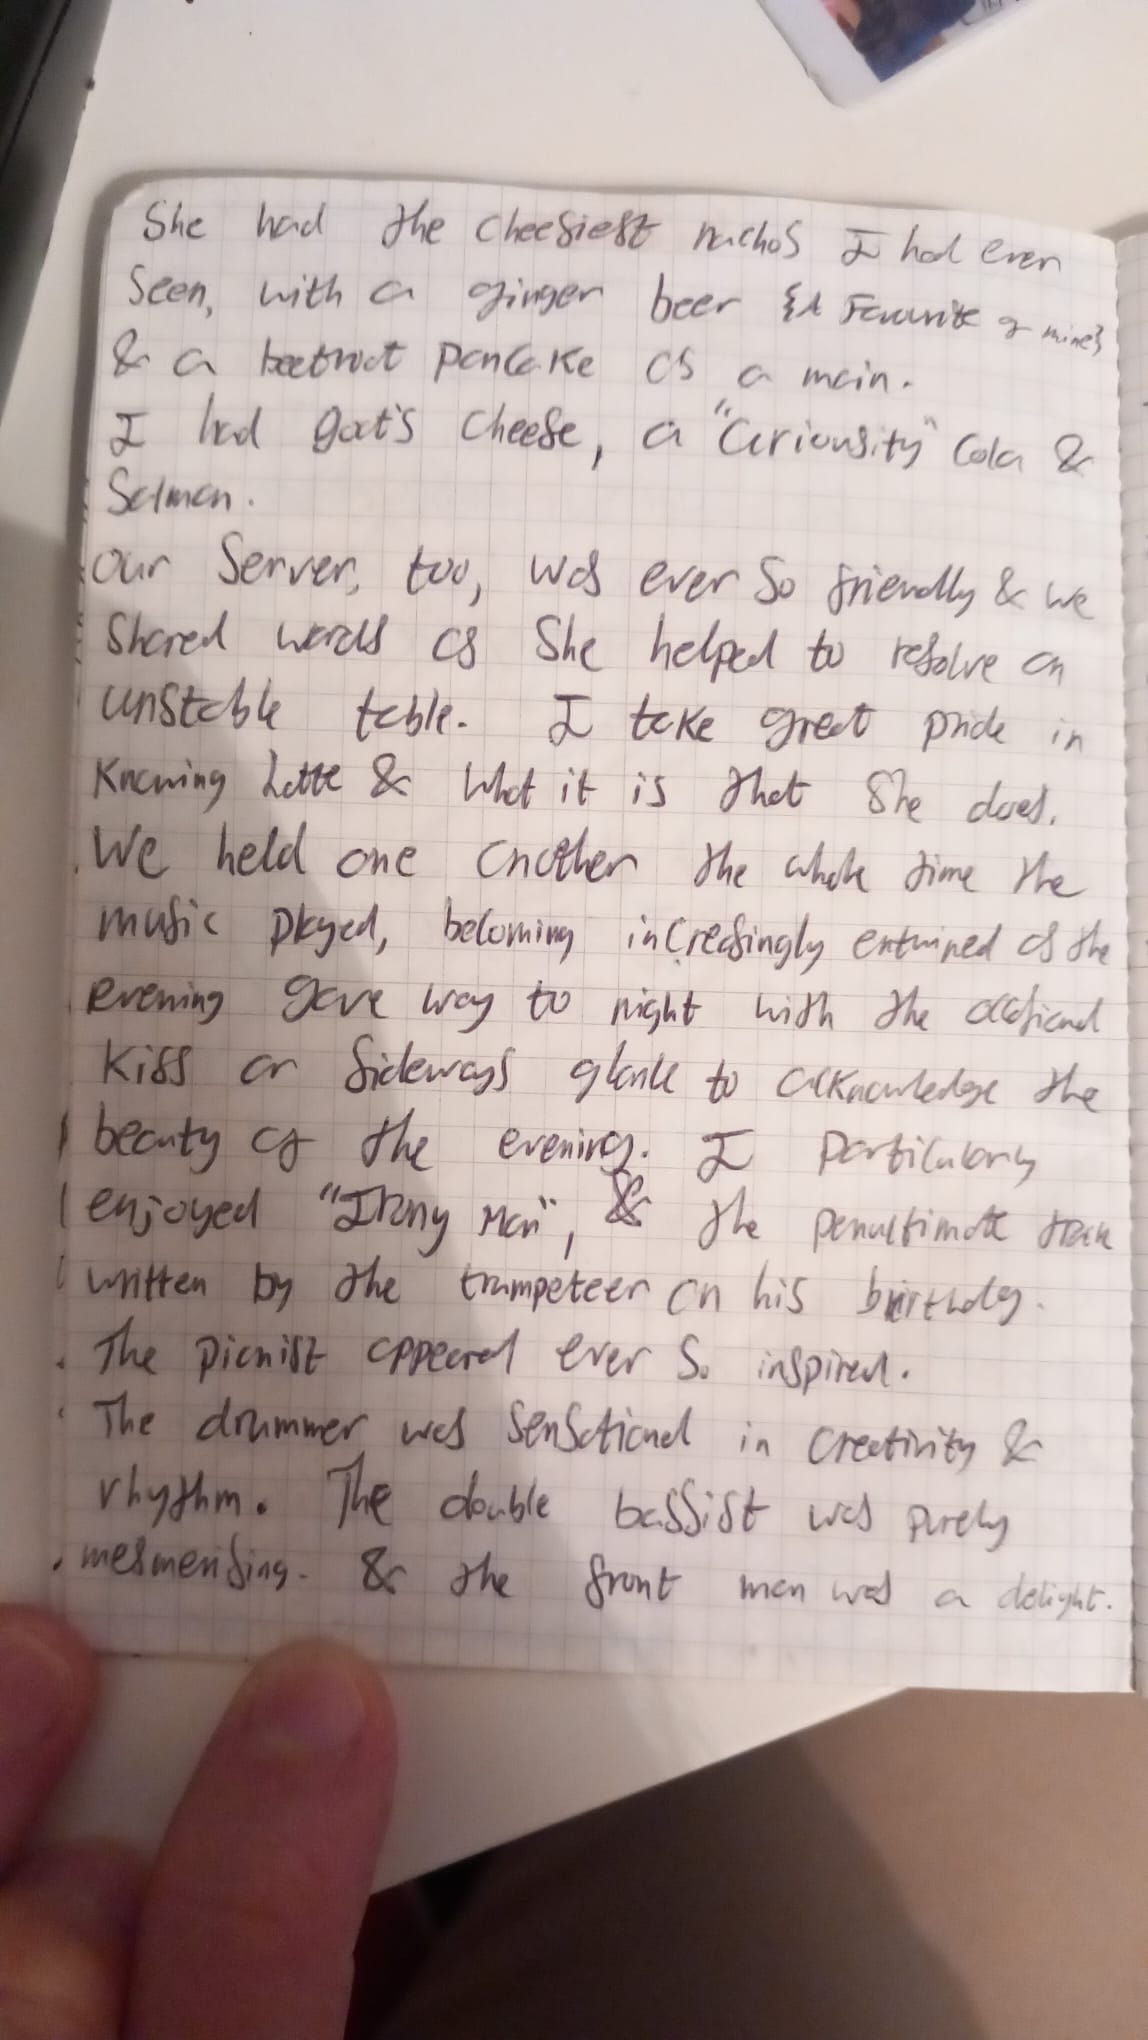 She had the cheesiest nachos I had ever
seen, with a ginger beer {A favourite of mine}
& a beetroot pancake as a main.
I had goat's cheese, a "Curiousity" Cola &
Salmon.
Our server, too, was ever so friendly & we
shared words as she helped to resolve an
unstable table. I take great pride in
knowing Lotte & what it is that she does.
We held one another the whole time the
music played, becoming increasingly entwined as the
evening gave way to night with the occasional
kiss or sideways glance to acknowledge the
beauty of the evening. I particularly
enjoyed "Irony Man", & the penultimate track
written by the trumpeter on his birthday.
The pianist appeared ever so inspired.
The drummer was sensational in creativity &
rhythm. The double bassist was purely
mesmerising. & the front man was a delight.